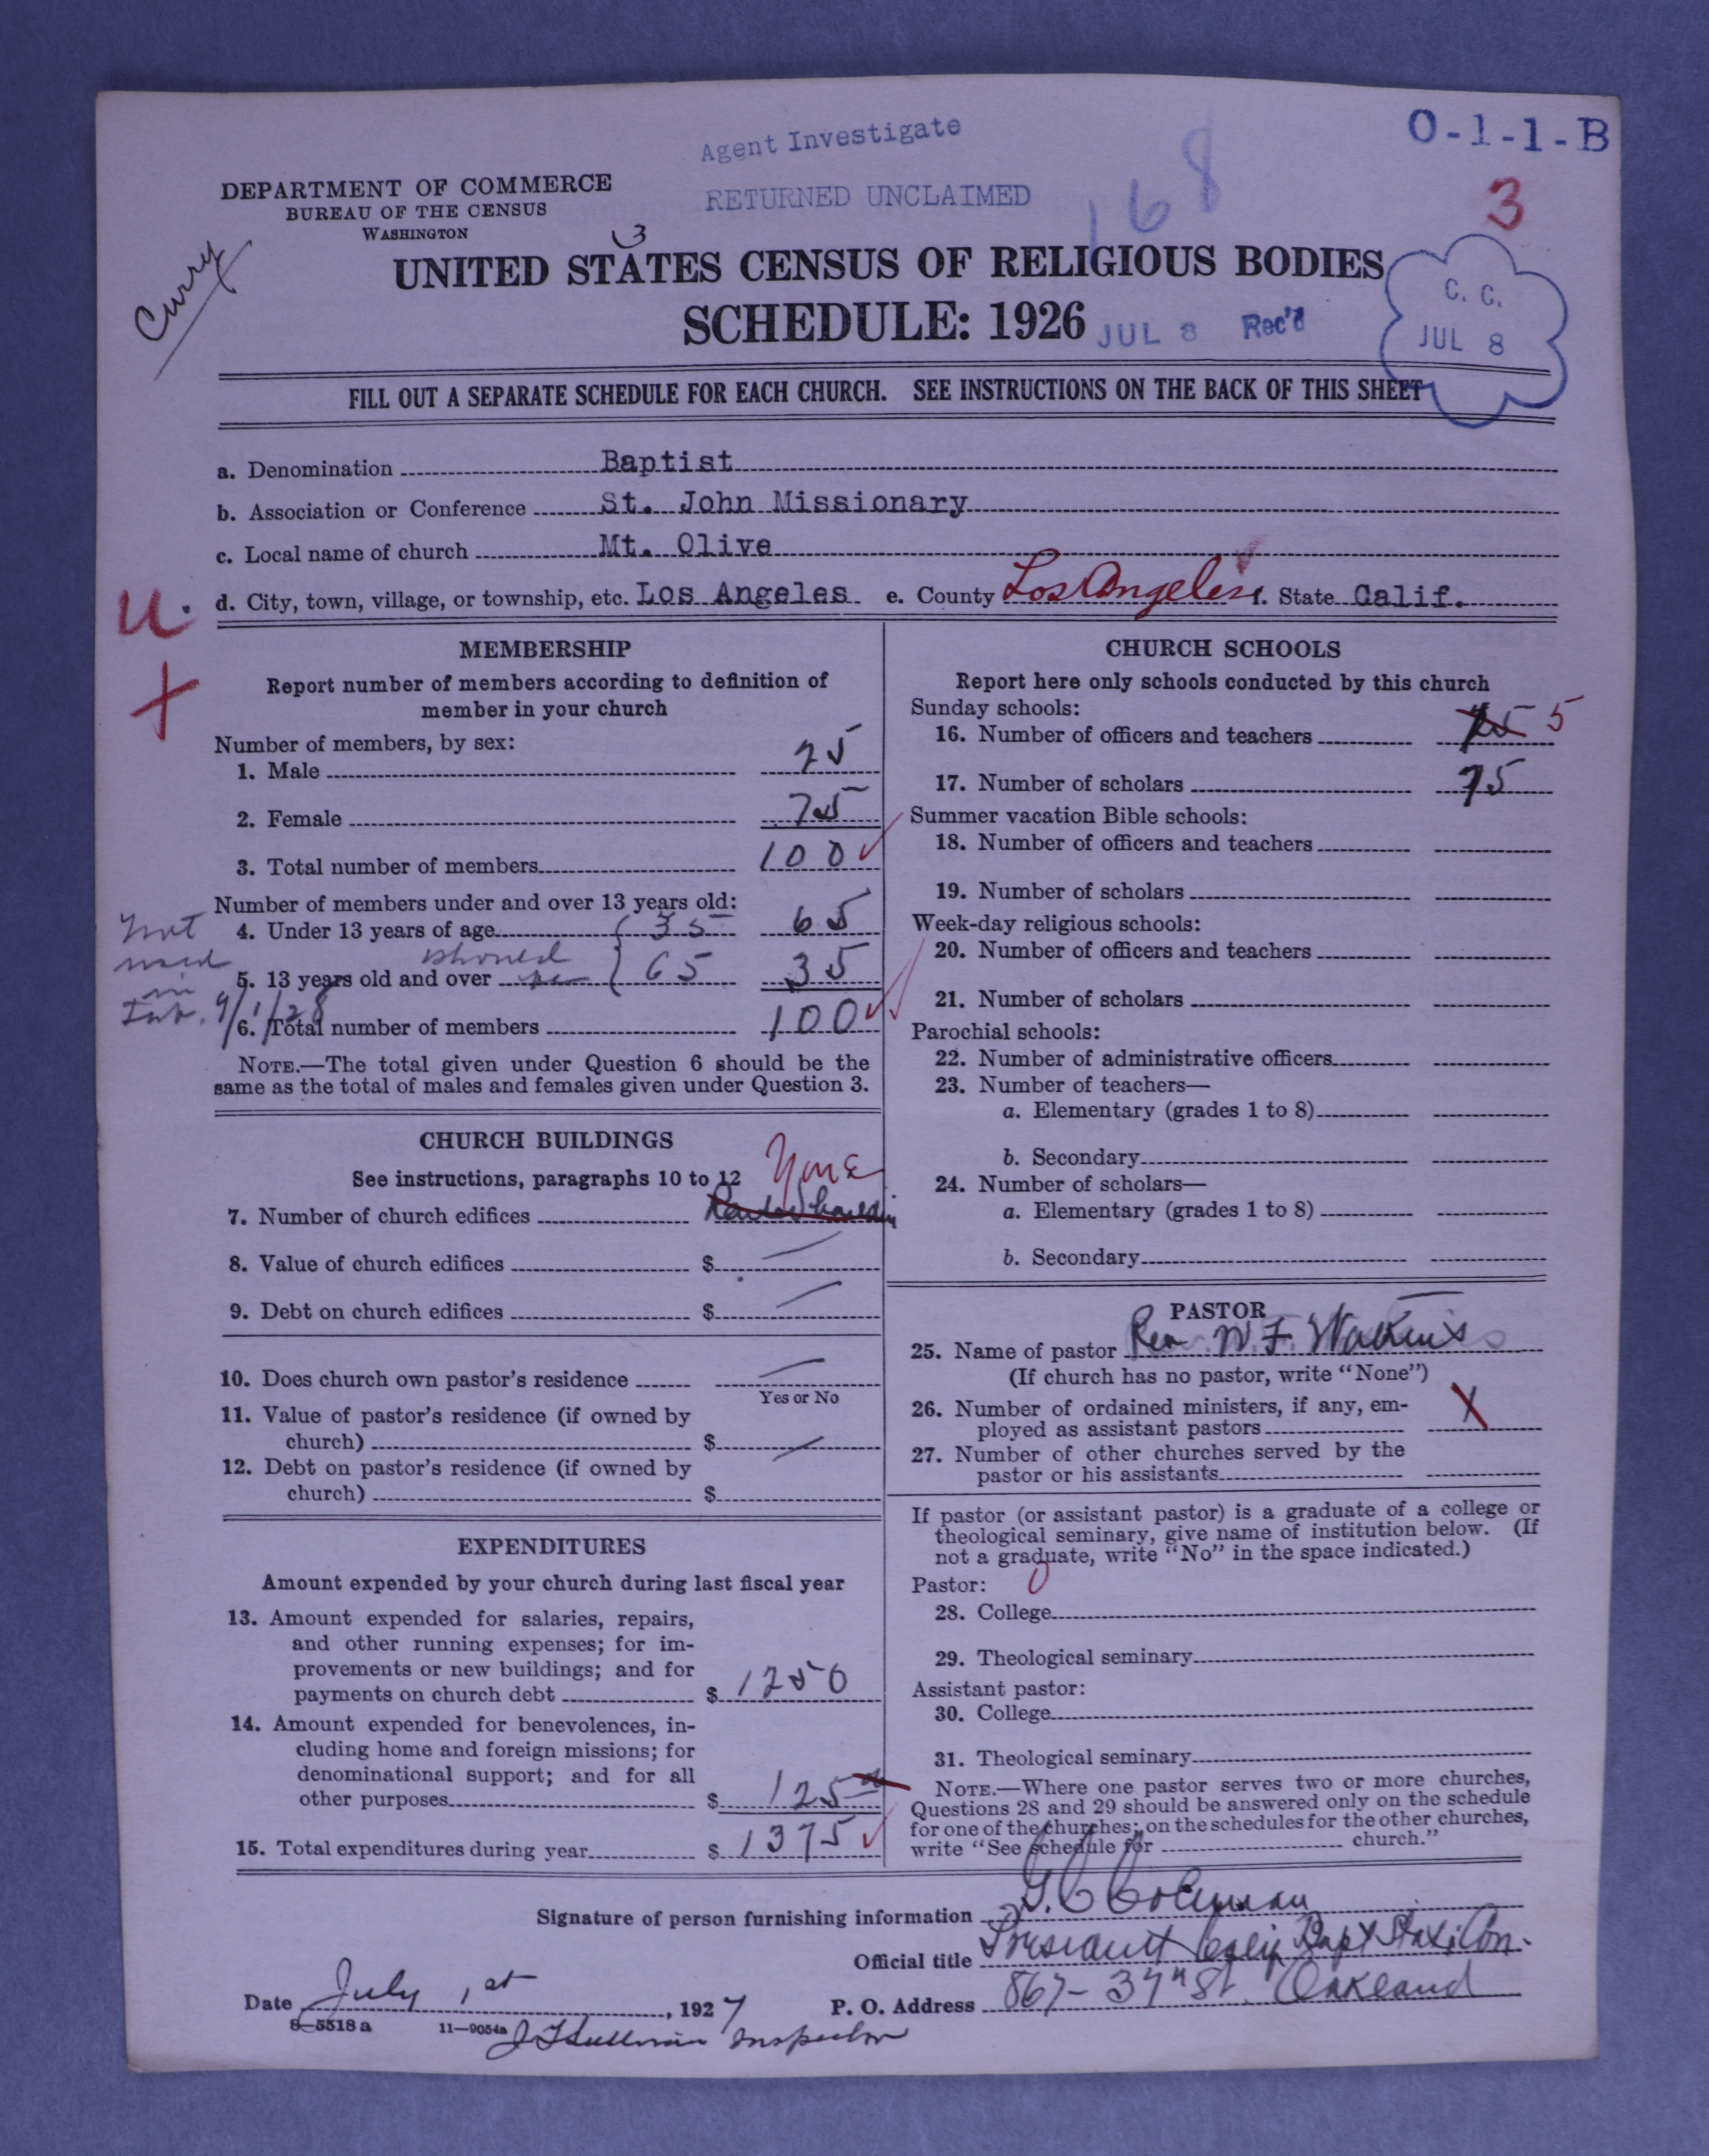 Agent Investigate
O-1-1-B
RETURNED UNCLAIMED
168
3
DEPARTMENT OF COMMERCE
BUREAU OF THE CENSUS
WASHINGTON
Curry
3
UNITED STATES CENSUS OF RELIGIOUS BODIES
SCHEDULE: 1926
JUL 8 Rec'd
C. C.
JUL 8
FILL OUT A SEPARATE SCHEDULE FOR EACH CHURCH. SEE INSTRUCTIONS ON THE BACK OF THIS SHEET
a. Denomination Baptist
b. Association or Conference St. John Missionary
c. Local name of church Mt. Olive
u. d. City, town, village, or township, etc. Los Angeles e. County Los Angeles f. State Calif.
MEMBERSHIP
Report number of members according to definition of
member in your church
Number of members, by sex:
1. Male 25
2. Female 75
3. Total number of members 100
Number of members under and over 13 years old:
4. Under 13 years of age 35 65
should
5. 13 years old and over be 65 35
6. Total number of members 100
Not
used
in
Tab. 9/1/28
NOTE.—The total given under Question 6 should be the
same as the total of males and females given under Question 3.
CHURCH BUILDINGS
See instructions, paragraphs 10 to 12
None
7. Number of church edifices
8. Value of church edifices $
9. Debt on church edifices $
10. Does church own pastor's residence
Yes or No
11. Value of pastor's residence (if owned by
church) $
12. Debt on pastor's residence (if owned by
church) $
EXPENDITURES
Amount expended by your church during last fiscal year
13. Amount expended for salaries, repairs,
and other running expenses; for im-
provements or new buildings; and for
payments on church debt $ 1250
14. Amount expended for benevolences, in-
cluding home and foreign missions; for
denominational support; and for all
other purposes $ 125
15. Total expenditures during year $ 1375
CHURCH SCHOOLS
Report here only schools conducted by this church
Sunday schools:
16. Number of officers and teachers 5
17. Number of scholars 75
Summer vacation Bible schools:
18. Number of officers and teachers
19. Number of scholars
Week-day religious schools:
20. Number of officers and teachers
21. Number of scholars
Parochial schools:
22. Number of administrative officers
23. Number of teachers—
a. Elementary (grades 1 to 8)
b. Secondary
24. Number of scholars—
a. Elementary (grades 1 to 8)
b. Secondary
PASTOR
25. Name of pastor Rev. W. F. Watkins
(If church has no pastor, write "None")
26. Number of ordained ministers, if any, em-
ployed as assistant pastors
27. Number of other churches served by the
pastor or his assistants
If pastor (or assistant pastor) is a graduate of a college or
theological seminary, give name of institution below. (If
not a graduate, write "No" in the space indicated.)
Pastor: 0
28. College
29. Theological seminary
Assistant pastor:
30. College
31. Theological seminary
NOTE.—Where one pastor serves two or more churches,
Questions 28 and 29 should be answered only on the schedule
for one of the churches; on the schedules for the other churches,
write "See schedule for church."
Signature of person furnishing information G. C. Coleman
Official title President Bapt State Con.
Date July 1st, 1927 P. O. Address 867-37th St. Oakland
8-5518a 11-9054a
Inspector